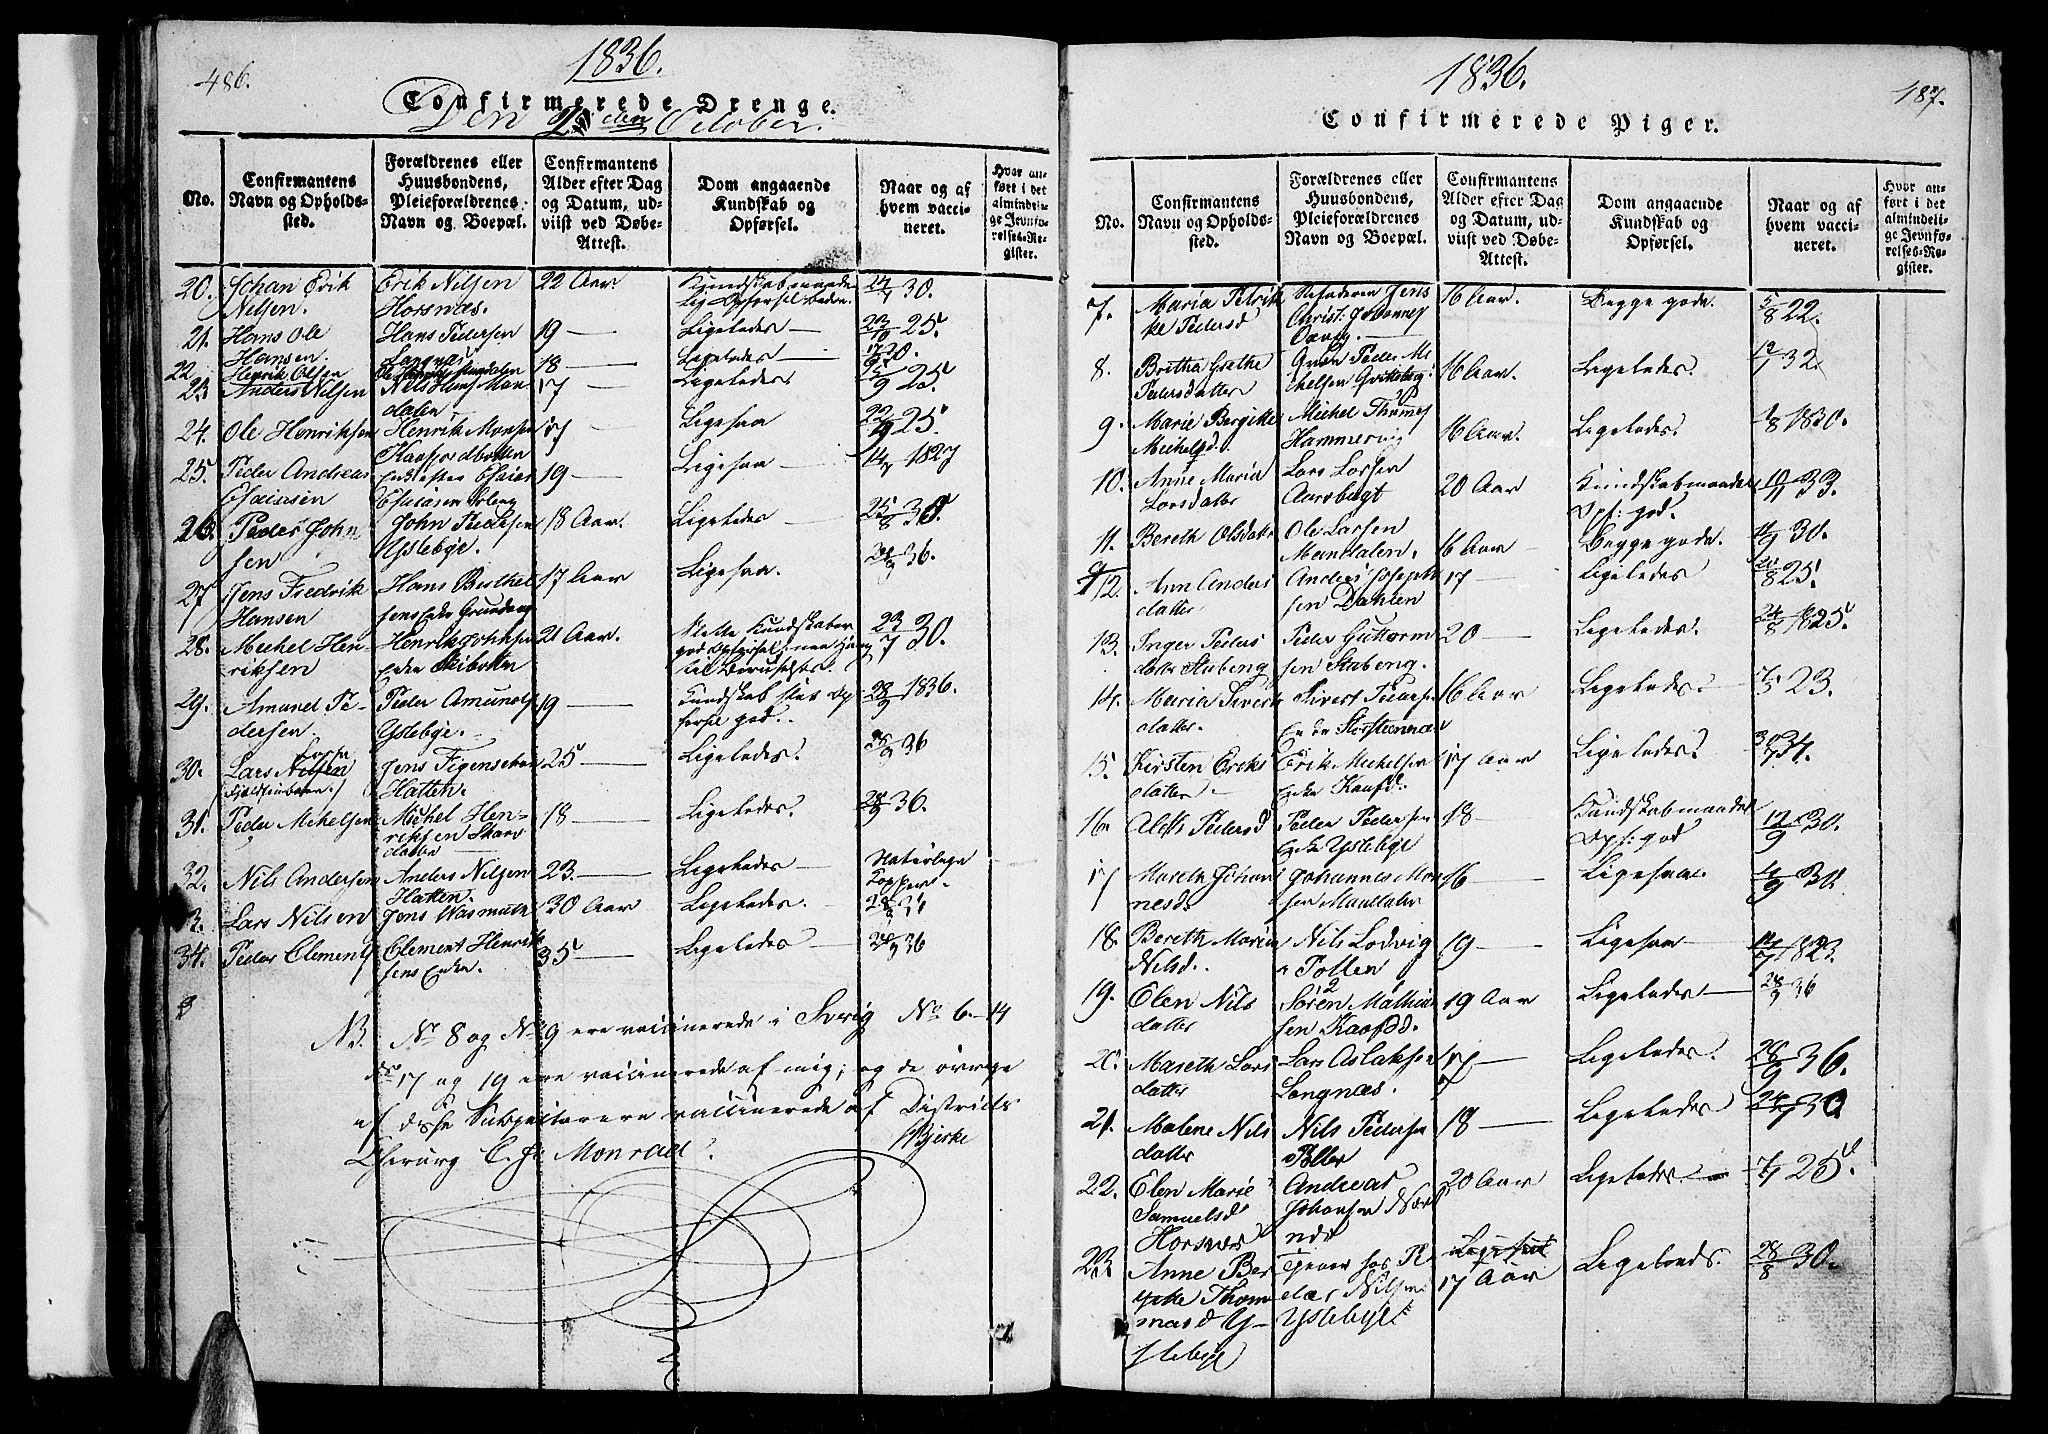 486.
1836.
Confirmerede Drenge.
Den 2den October.
No.
Confirmantens Navn og Opholdssted.
Forældrenes eller Huusbondens, Pleieforældrenes Navn og Boepæl.
Confirmantens Alder efter Dag og Datum, udviist ved Døbe-Attest.
Dom angaaende Kundskab og Opførsel.
Naar og af hvem vaccineret.
Hvor anført i det almindelige Jevnførelses-Register.
20. Johan Erik Nilsen. Erik Nilsen Horsnæs. 22 Aar Kundskab maadelig Opførsel bedre. 30.
21. Hans Ole Hansen. Hans Pedersen Langnæs 19 — Ligeledes — 25.
22. Henrik Olsen 18 — Ligeledes — 30.
23 Anders Nilsen Nils Hans. Mandalen 17 — Ligeledes 25.
24. Ole Henriksen Henrik Monsen Kaafjordbotten 17 — Ligesaa 22/9 25.
25. Peder Andreas Esaiasen Enke efter Esaias Esaiasen 19 — Ligesaa — 1827
26. Peder Johnsen John Pedersen Yttebye. 18 Aar. Ligeledes — 25/8 30.
27 Jens Fredrik Hansen Hans Berthelsens Enke 17 Aar Ligesaa. 36.
28. Michel Henriksen Henrik Enke Skibotten 21 Aar. Slette Kundskaber god Opførsel 23/7 30.
29. Amund Pedersen Peder Amunds Yttebye. 19 — Kundskab Opførsel god. 28/9 1836.
30. Lars Nilsen Jens Figenschou Hatten. 25 — Ligeledes. 28/9 36
31. Peder Mikelsen Michel Henriksen 18 — Ligeledes. 28/9 36.
32. Nils Andersen Anders Nilsen Hatten. 23. — Ligeledes — Naturlige Kopper.
33. Lars Nilsen Jens Wasmuth 30 Aar Ligeledes. 28/9 36
34. Peder Clements Clement Henriksens Enke. 35 — Ligeledes — 28/9 36
NB. No 8 og No 9 ere vaccinerede i Sverig No 6–14
17 og 19 ere vaccinerede af mig; og de øvrige
af disse vaccinerede af Districts
Chirurg C. F. Monrad.
Bjerke
1836.
187.
Confirmerede Piger.
No.
Confirmantens Navn og Opholdssted.
Forældrenes eller Huusbondens, Pleieforældrenes Navn og Boepæl.
Confirmantens Alder efter Dag og Datum, udviist ved Døbe-Attest.
Dom angaaende Kundskab og Opførsel.
Naar og af hvem vaccineret.
Hvor anført i det almindelige Jevnførelses-Register.
7. Maria Petrikke Pedersd Jens Christ: Johannes 16 Aar. Begge gode. 5/8 22.
8. Britha Grethe Pedersdatter Peder Michelsen 16 Aar. Ligeledes. 32.
9. Marie Bergitte Michelsd. Michel Thomes Hammervig 16 Aar. Ligeledes. 1830.
10. Anne Maria Larsdatter Lars Larsen Aarsbugt 20 Aar Kundskab maadel. Opf: god. 33.
11. Bereth Olsdatter Ole Larsen Mandalen. 16 Aar — Begge gode. 30.
12. Ann Andersdatter Andreas Josephsen Dahlen 17 — Ligeledes 25.
13. Inger Pedersdatter Staberg Peder Guttormsen Staberg. 20 — Ligeledes. 24/8 1825.
14. Maria Sivertsdatter. Sivert Pedersen Enke Storsteennæs 16 Aar Ligeledes. — 23.
15. Kirsten Eriksdatter. Erik Mikelsen Enke Kaafd. 17 Aar Ligeledes. 34.
16. Aleth Pedersd Peder Pedersen Enke Yttebye 18 — Kundskab maadel. Opf: god 12/9 30.
17 Mareth Johannesd. Johannes Monsen Mandalen 16 — Ligesaa. 30.
18. Bereth Maria Nilsd. Nils Lodvig Pollen 19 — Ligesaa — 1823.
19. Elen Nilsdatter Søren Mathiasen Kaafd. 19 Aar Ligeledes — 28/9 36
20. Mareth Larsdatter Lars Aslaksen Langnæs. 17 — Ligeledes. 28/9 36.
21. Malene Nilsdatter Nils Pedersen Pollen 18 — Ligeledes 30
22. Elen Marie Samuelsd Horsnæs Andreas Johansen 20 Aar Ligeledes — 25.
23. Anne Bergitte Thommasd Yttebye Tjener hos Peder Nilsen Yttebye 17 Aar Ligeleds. 28/8 30.